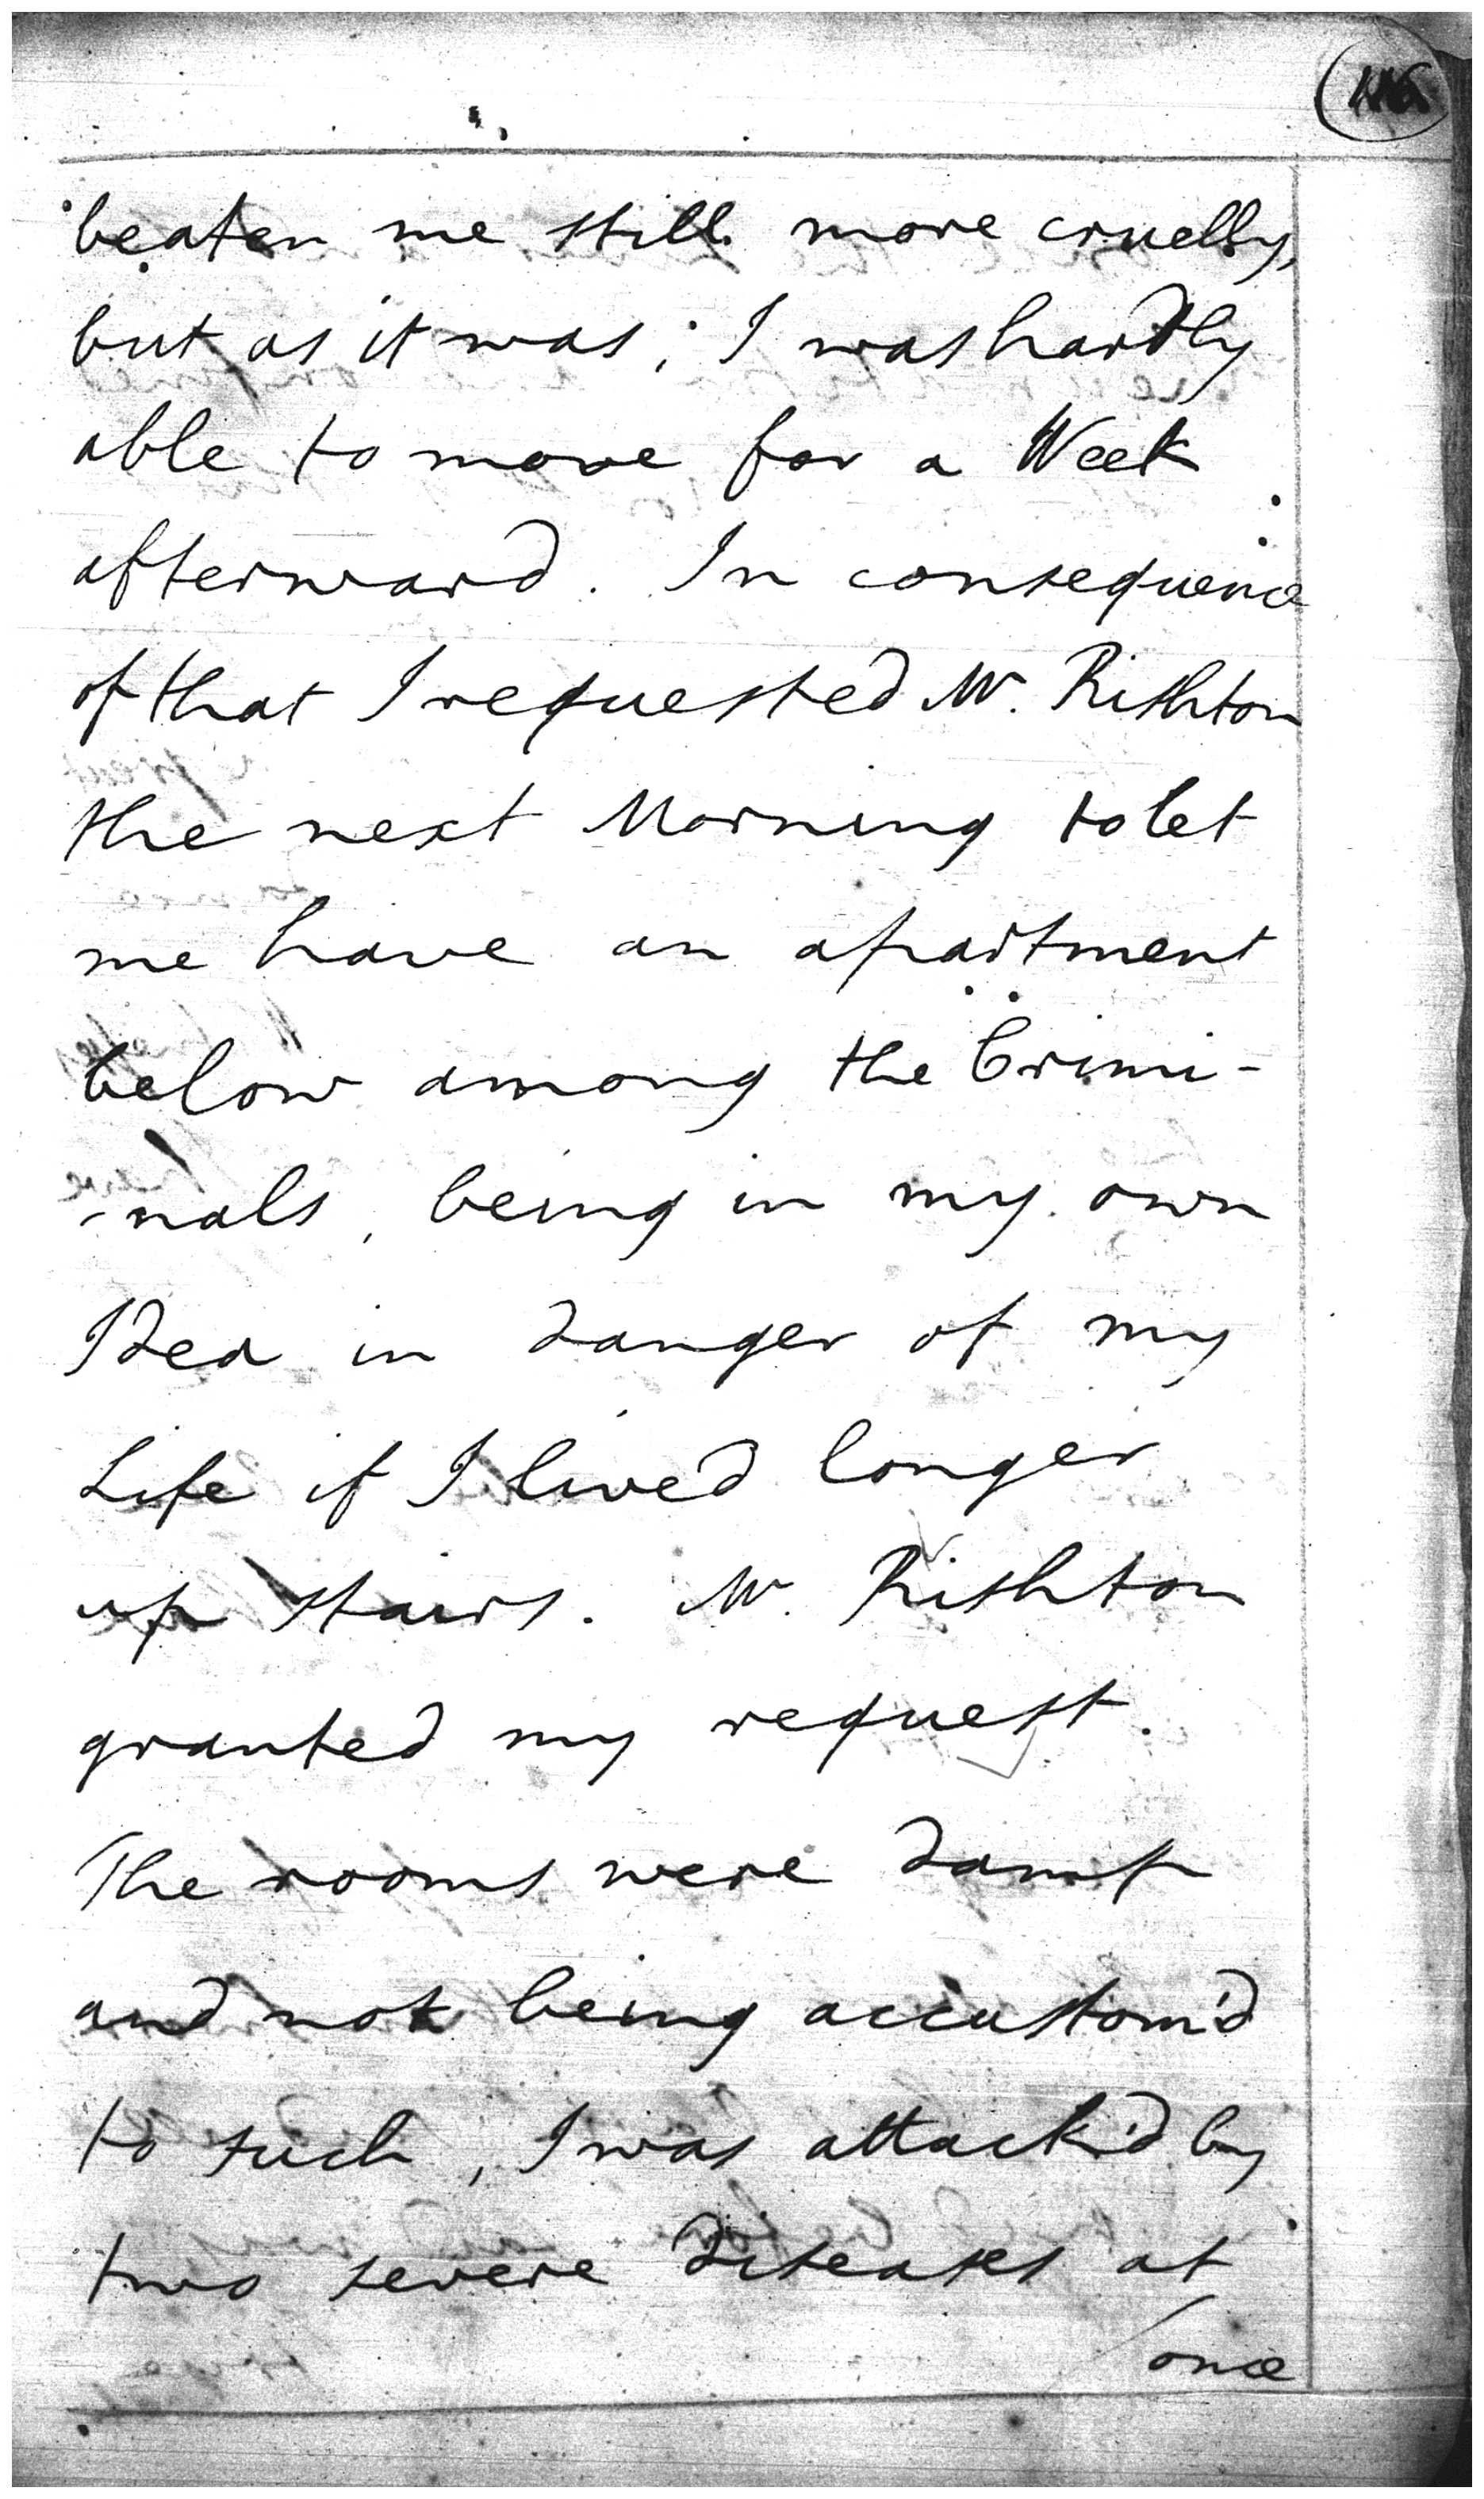 beaten me still more cruelly,
but as it was, I was hardly
able to move for a Week
afterward. In consequence
of that I requested Mr. Rishton
the next Morning to let
me have an apartment
below among the Crimi-
-nals, being in my own
Idea in danger of my
Life if I lived longer
up stairs. Mr. Rishton
granted my request.
The rooms were damp
and not being accustom'd
to such, I was attack'd by
two severe Diseases at
once